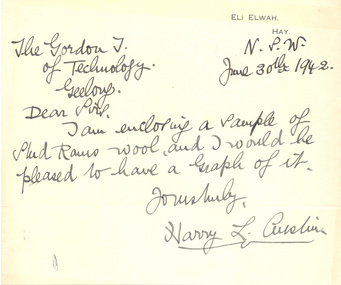 ELI ELWAH,
HAY.
N. S. W.
The Gordon I.
of Technology.
Geelong.
June 30th 1942.
Dear Sirs,
I am enclosing a sample of
Stud Rams wool and I would be
pleased to have a Graph of it.
Yours truly,
Harry L. Austin